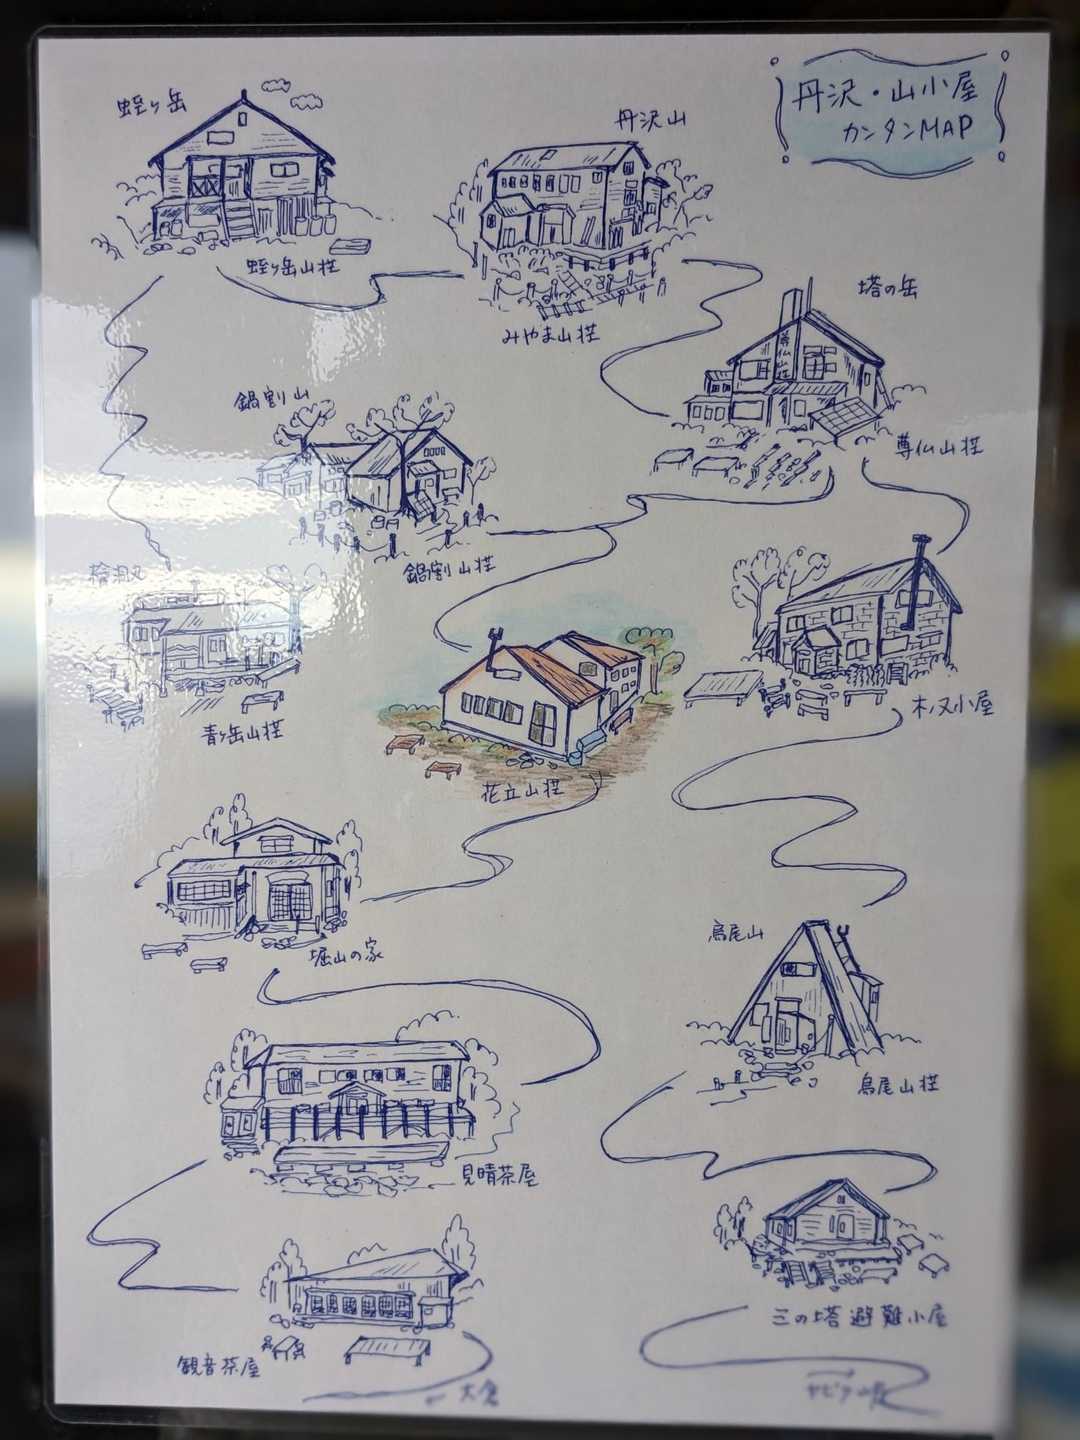 丹沢・山小屋
カンタンMAP
蛭ヶ岳
蛭ヶ岳山荘
丹沢山
みやま山荘
塔の岳
尊仏山荘
尊仏山荘
鍋割山
鍋割山荘
檜洞丸
青ヶ岳山荘
花立山荘
木ノ又小屋
堀山の家
鳥尾山
鳥尾山荘
見晴茶屋
三の塔避難小屋
観音茶屋
大倉
ヤビツ峠